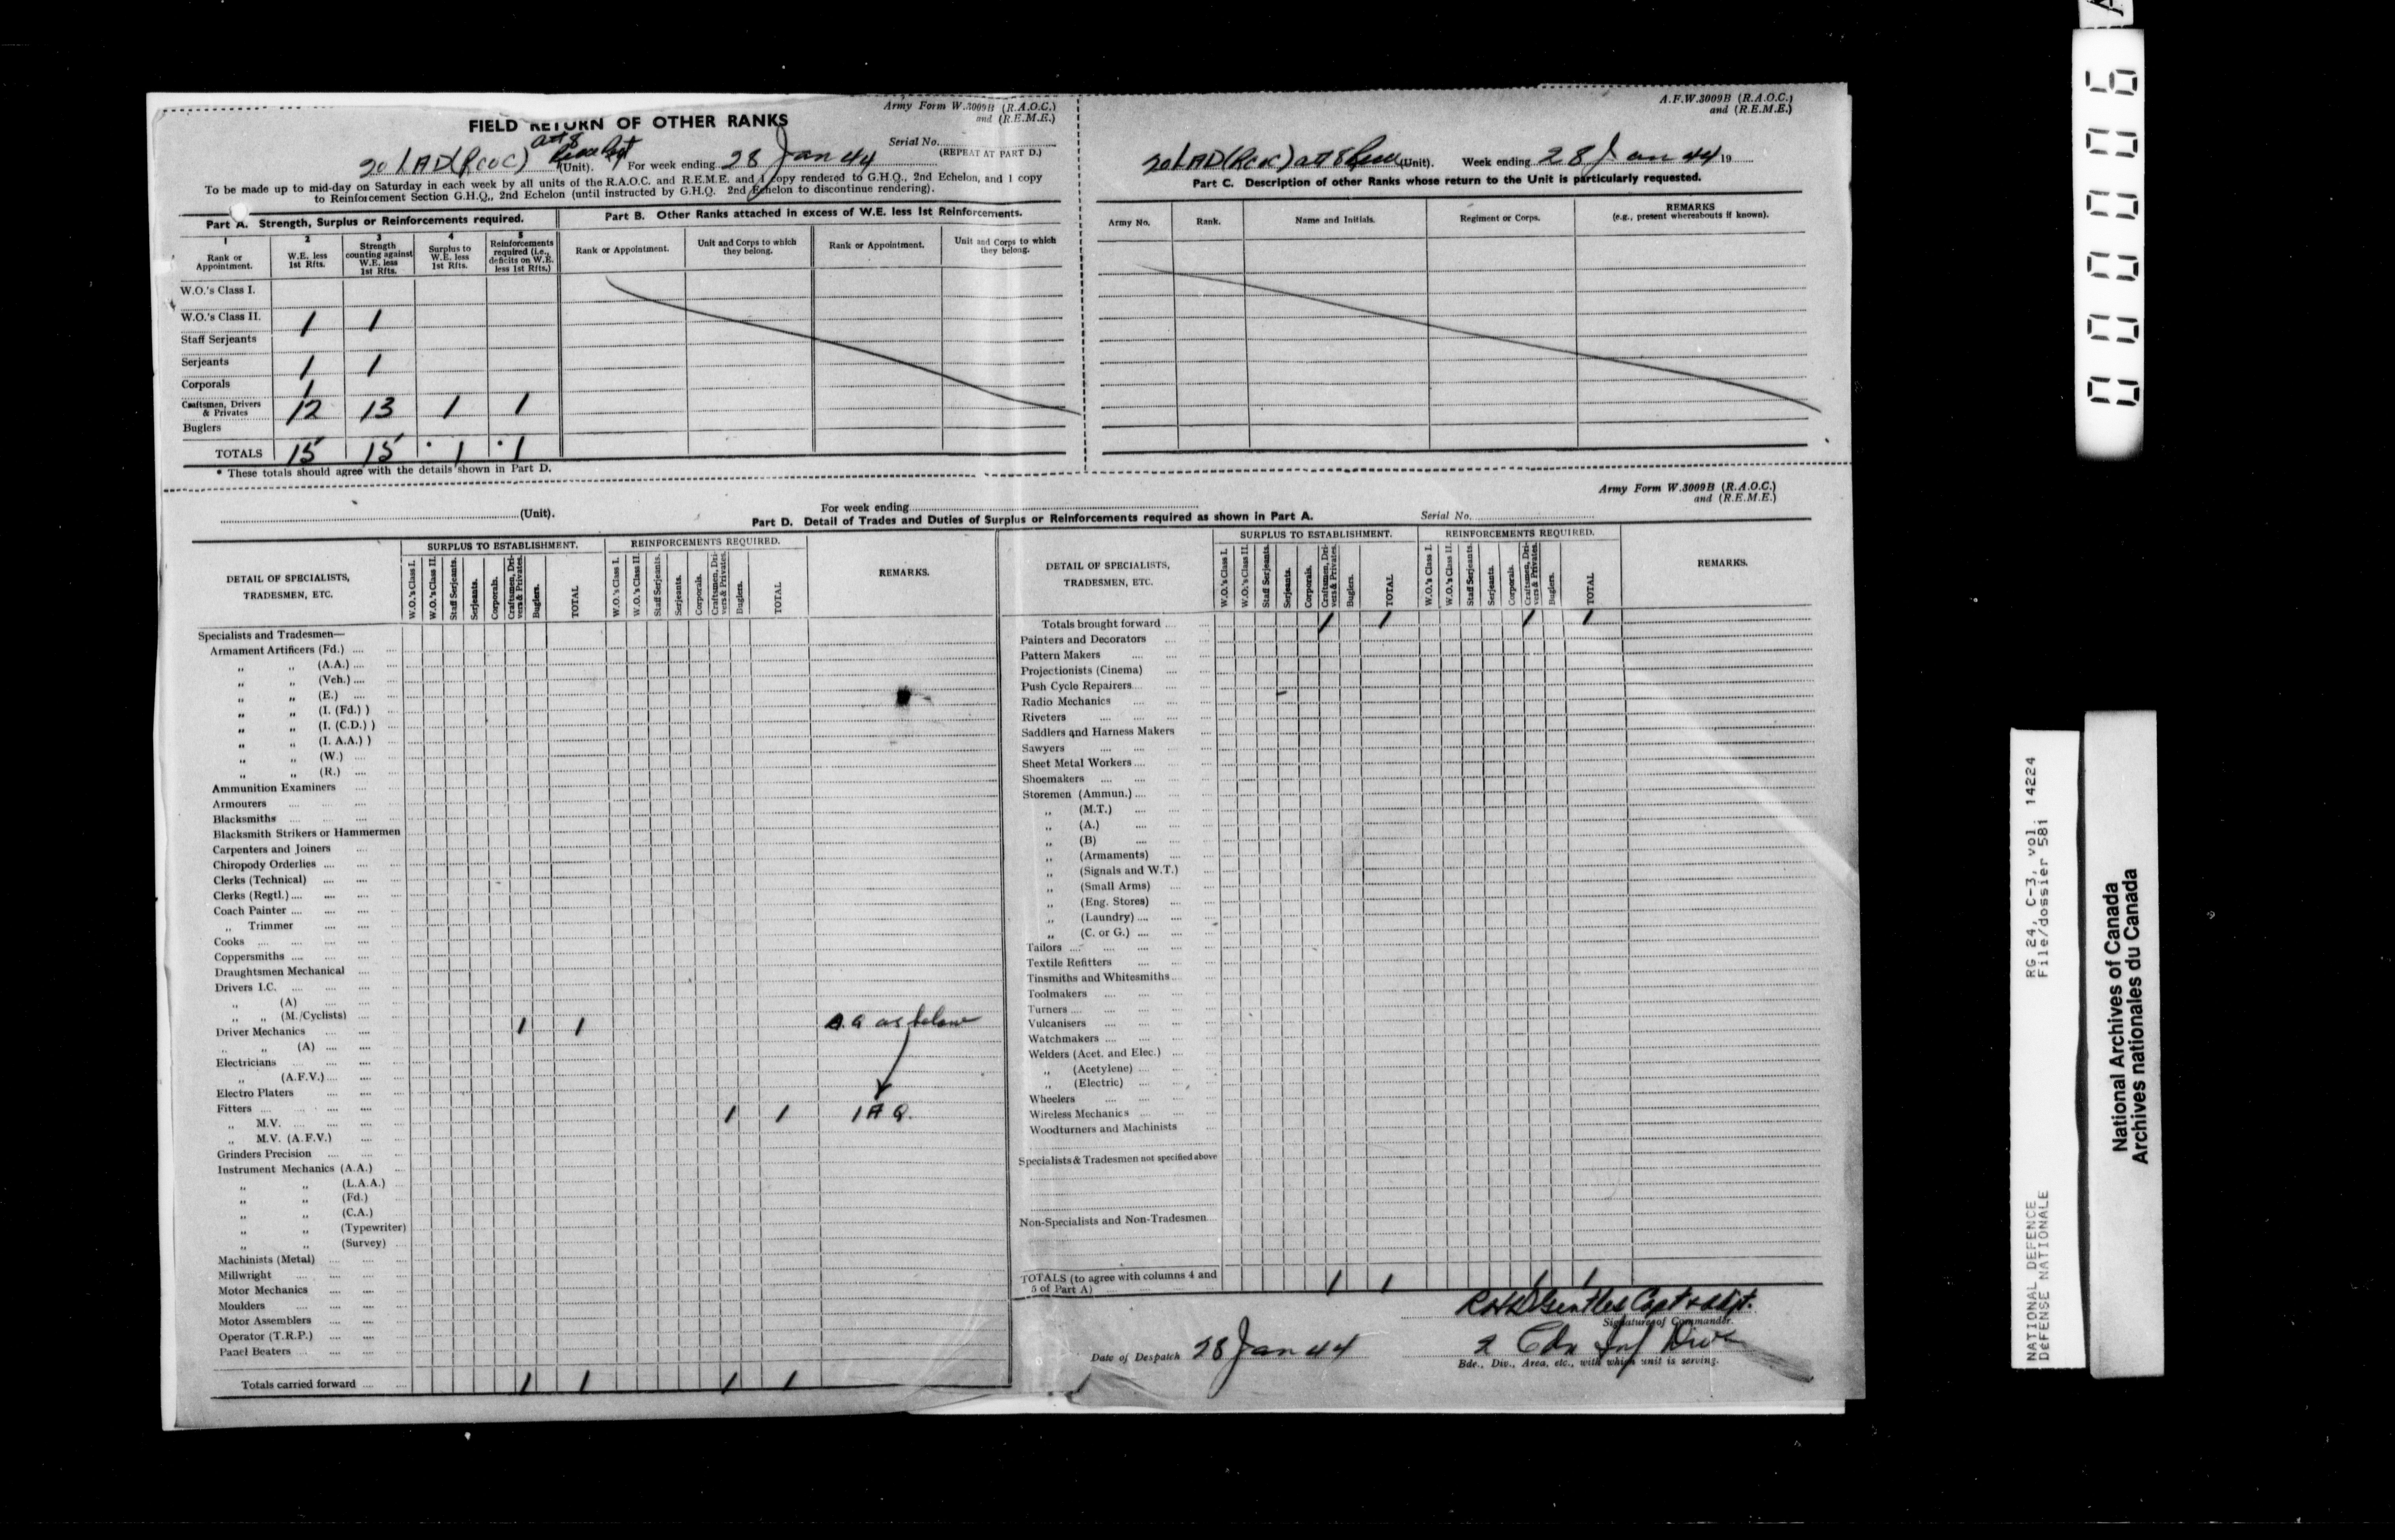 Army Form W.3009B (R.A.O.C.)
and (R.E.M.E.)
FIELD RETURN OF OTHER RANKS
Serial No.
(REPEAT AT PART D.)
20 LAD (RCOC) att 8 (Unit). For week ending 28 Jan 44
To be made up to mid-day on Saturday in each week by all units of the R.A.O.C. and R.E.M.E. and 1 copy rendered to G.H.Q., 2nd Echelon, and 1 copy
to Reinforcement Section G.H.Q., 2nd Echelon (until instructed by G.H.Q. 2nd Echelon to discontinue rendering).
Part A. Strength, Surplus or Reinforcements required.
Part B. Other Ranks attached in excess of W.E. less 1st Reinforcements.
1 2 3 4 5
Rank or Appointment.
W.E. less 1st Rfts.
Strength counting against W.E. less 1st Rfts.
Surplus to W.E. less 1st Rfts.
Reinforcements required (i.e., deficits on W.E. less 1st Rfts.)
Rank or Appointment.
Unit and Corps to which they belong.
Rank or Appointment.
Unit and Corps to which they belong.
W.O.'s Class I.
W.O.'s Class II. 1 1
Staff Serjeants
Serjeants 1 1
Corporals 1
Craftsmen, Drivers & Privates 12 13 1 1
Buglers
TOTALS 15 15 * 1 * 1
* These totals should agree with the details shown in Part D.
A.F.W.3009B (R.A.O.C.)
and (R.E.M.E.)
20 LAD (RCOC) att 8 (Unit). Week ending 28 Jan 44 19
Part C. Description of other Ranks whose return to the Unit is particularly requested.
Army No.
Rank.
Name and Initials.
Regiment or Corps.
REMARKS
(e.g., present whereabouts if known).
Army Form W.3009B (R.A.O.C.)
and (R.E.M.E.)
(Unit).
For week ending
Serial No.
Part D. Detail of Trades and Duties of Surplus or Reinforcements required as shown in Part A.
DETAIL OF SPECIALISTS,
TRADESMEN, ETC.
SURPLUS TO ESTABLISHMENT.
W.O.'s Class I.
W.O.'s Class II.
Staff Serjeants.
Serjeants.
Corporals.
Craftsmen, Drivers & Privates.
Buglers.
TOTAL
REINFORCEMENTS REQUIRED.
W.O.'s Class I.
W.O.'s Class II.
Staff Serjeants.
Serjeants.
Corporals.
Craftsmen, Drivers & Privates.
Buglers.
TOTAL
REMARKS.
Specialists and Tradesmen—
Armament Artificers (Fd.)
,, ,, (A.A.)
,, ,, (Veh.)
,, ,, (E.)
,, ,, (I. (Fd.) )
,, ,, (I. (C.D.) )
,, ,, (I. A.A.) )
,, ,, (W.)
,, ,, (R.)
Ammunition Examiners
Armourers
Blacksmiths
Blacksmith Strikers or Hammermen
Carpenters and Joiners
Chiropody Orderlies
Clerks (Technical)
Clerks (Regtl.)
Coach Painter
,, Trimmer
Cooks
Coppersmiths
Draughtsmen Mechanical
Drivers I.C.
,, (A)
,, ,, (M./Cyclists)
Driver Mechanics 1 1 as below
,, ,, (A)
Electricians
,, (A.F.V.)
Electro Platers
Fitters
,, M.V. 1 1 1
,, M.V. (A.F.V.)
Grinders Precision
Instrument Mechanics (A.A.)
,, ,, (L.A.A.)
,, ,, (Fd.)
,, ,, (C.A.)
,, ,, (Typewriter)
,, ,, (Survey)
Machinists (Metal)
Millwright
Motor Mechanics
Moulders
Motor Assemblers
Operator (T.R.P.)
Panel Beaters
Totals carried forward 1 1 1 1
DETAIL OF SPECIALISTS,
TRADESMEN, ETC.
SURPLUS TO ESTABLISHMENT.
W.O.'s Class I.
W.O.'s Class II.
Staff Serjeants.
Serjeants.
Corporals.
Craftsmen, Drivers & Privates.
Buglers.
TOTAL
REINFORCEMENTS REQUIRED.
W.O.'s Class I.
W.O.'s Class II.
Staff Serjeants.
Serjeants.
Corporals.
Craftsmen, Drivers & Privates.
Buglers.
TOTAL
REMARKS.
Totals brought forward 1 1 1 1
Painters and Decorators
Pattern Makers
Projectionists (Cinema)
Push Cycle Repairers
Radio Mechanics
Riveters
Saddlers and Harness Makers
Sawyers
Sheet Metal Workers
Shoemakers
Storemen (Ammun.)
,, (M.T.)
,, (A.)
,, (B)
,, (Armaments)
,, (Signals and W.T.)
,, (Small Arms)
,, (Eng. Stores)
,, (Laundry)
,, (C. or G.)
Tailors
Textile Refitters
Tinsmiths and Whitesmiths
Toolmakers
Turners
Vulcanisers
Watchmakers
Welders (Acet. and Elec.)
,, (Acetylene)
,, (Electric)
Wheelers
Wireless Mechanics
Woodturners and Machinists
Specialists & Tradesmen not specified above
Non-Specialists and Non-Tradesmen
TOTALS (to agree with columns 4 and
5 of Part A) 1 1 1 1
Capt & Adjt.
Signature of Commander.
Date of Despatch 28 Jan 44
2 Cdn Inf Div
Bde., Div., Area, etc., with which unit is serving.
00006
RG 24, C-3, vol. 14224
File/dossier 581
NATIONAL DEFENCE
DÉFENSE NATIONALE
National Archives of Canada
Archives nationales du Canada